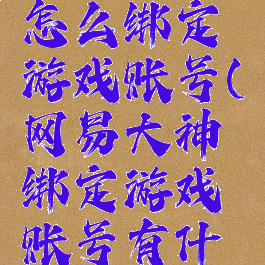 怎么绑定
游戏账号(
网易大神
绑定游戏
账号有什